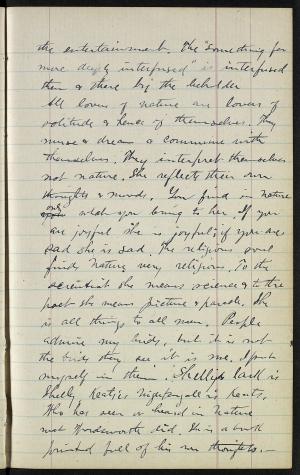 the entertainment. The "something far
more deeply interfused" is interfused
then & there by the beholder
All lovers of nature are lovers of
solitude & hence of themselves. They
muse & dream & commune with
themselves. They interpret themselves
not nature. She reflects their own
thoughts & moods. You find in nature
only what you bring to her. If you
are joyful she is joyful; if you are
sad she is sad. The religious soul
finds nature very religious. To the
scientist she means science & to the
poet she means picture & parable. She
is all things to all men. People
admire my birds, but it is not
the birds they see it is me. I put
myself in them. Shelly's lark is
Shelly, Keats's nightingale is Keats.
Who has seen or heard in Nature
what Wordsworth did. It is a book
printed full of his own thoughts.—